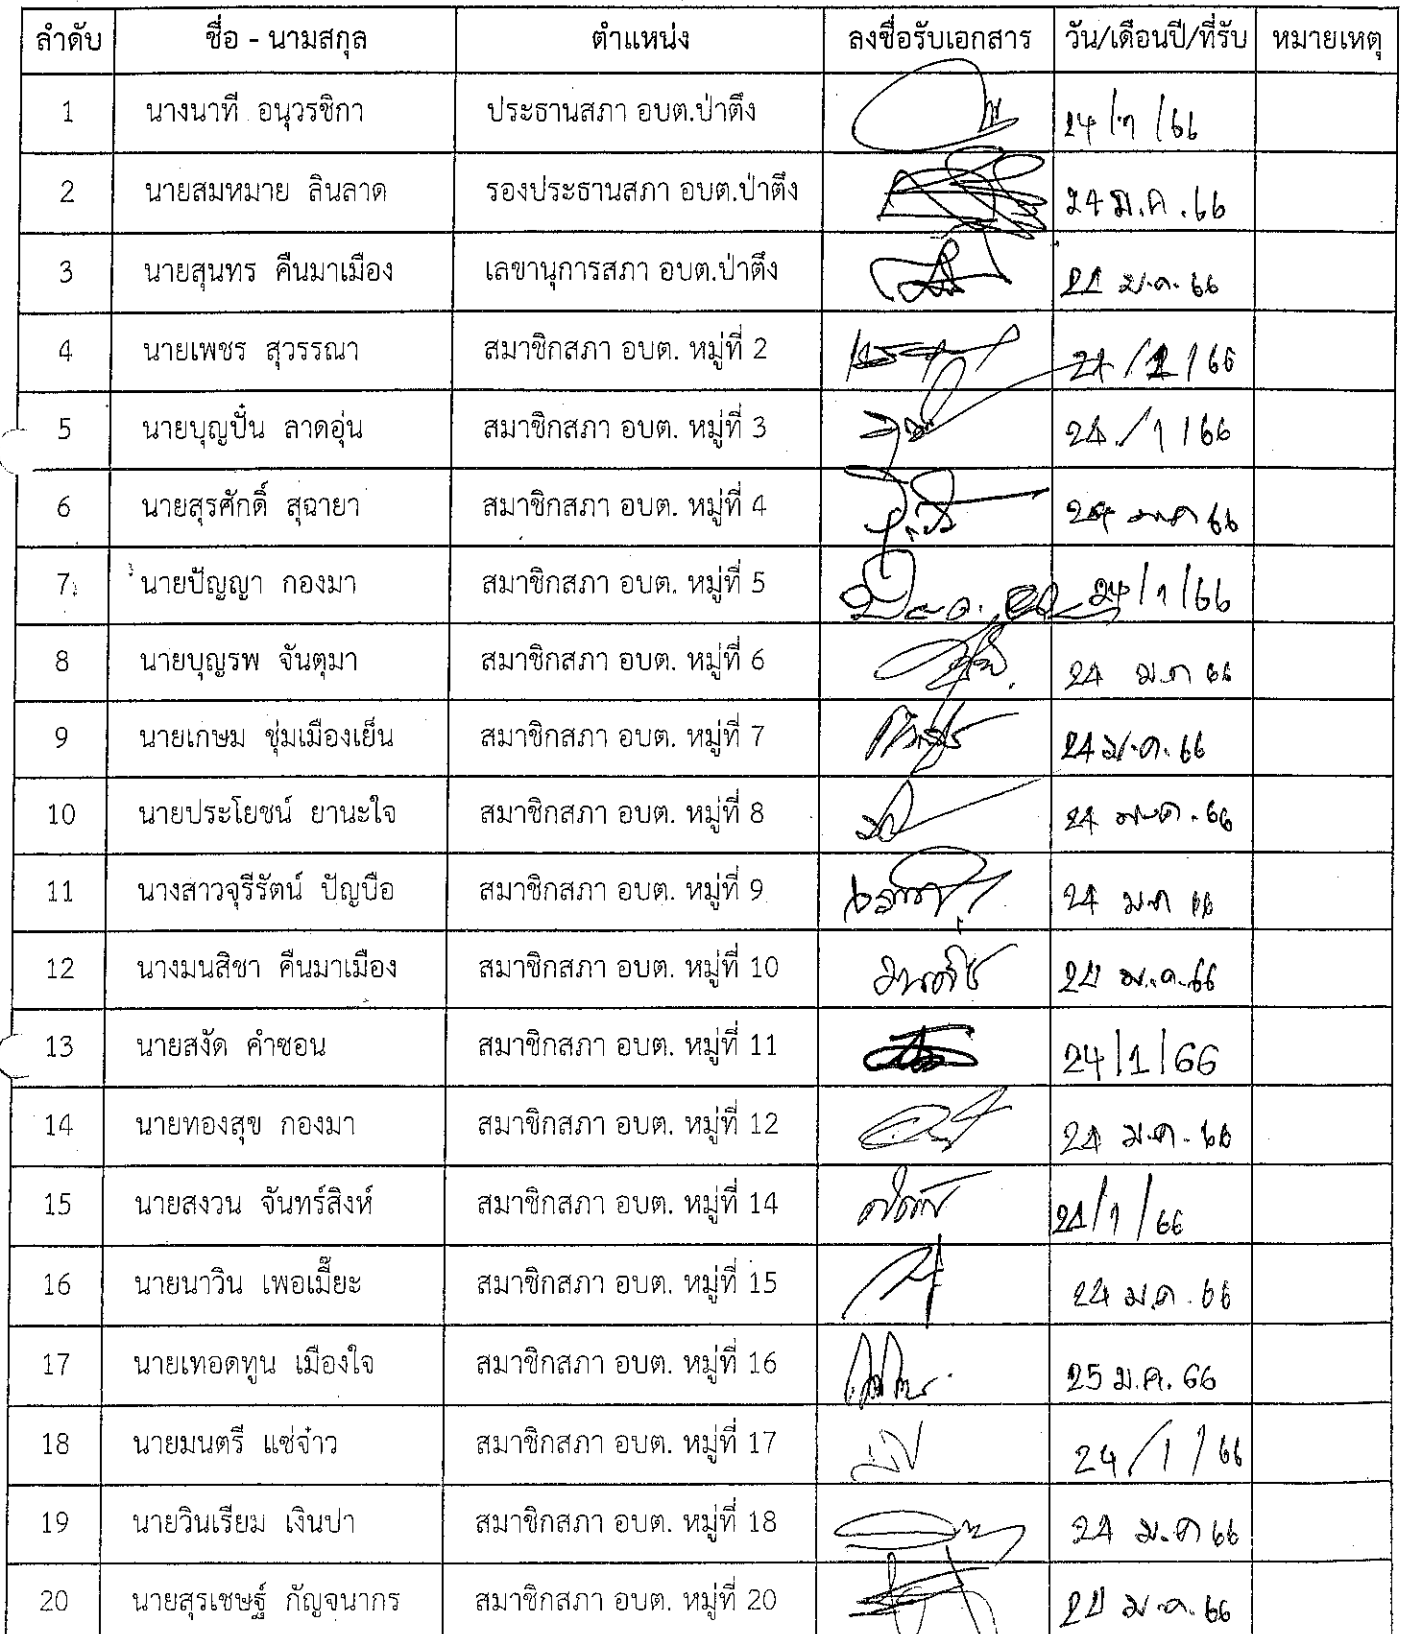 ลำดับ ชื่อ - นามสกุล ตำแหน่ง ลงชื่อรับเอกสาร วัน/เดือนปี/ที่รับ หมายเหตุ
1 นางนาที อนุวรชิกา ประธานสภา อบต.ป่าตึง 24/1/66
2 นายสมหมาย ลินลาด รองประธานสภา อบต.ป่าตึง 24 ม.ค.66
3 นายสุนทร คืนมาเมือง เลขานุการสภา อบต.ป่าตึง 24 ม.ค. 66
4 นายเพชร สุวรรณา สมาชิกสภา อบต. หมู่ที่ 2 24/1/66
5 นายบุญปั๋น ลาดอุ่น สมาชิกสภา อบต. หมู่ที่ 3 24/1/66
6 นายสุรศักดิ์ สุฉายา สมาชิกสภา อบต. หมู่ที่ 4 24 ม.ค 66
7 นายปัญญา กองมา สมาชิกสภา อบต. หมู่ที่ 5 24/1/66
8 นายบุญรพ จันตุมา สมาชิกสภา อบต. หมู่ที่ 6 24 ม.ค 66
9 นายเกษม ชุ่มเมืองเย็น สมาชิกสภา อบต. หมู่ที่ 7 24 ม.ค. 66
10 นายประโยชน์ ยานะใจ สมาชิกสภา อบต. หมู่ที่ 8 24 ม.ค. 66
11 นางสาวจุรีรัตน์ ปัญบือ สมาชิกสภา อบต. หมู่ที่ 9 24 ม.ค 66
12 นางมนสิชา คืนมาเมือง สมาชิกสภา อบต. หมู่ที่ 10 24 ม.ค.66
13 นายสงัด คำซอน สมาชิกสภา อบต. หมู่ที่ 11 24/1/66
14 นายทองสุข กองมา สมาชิกสภา อบต. หมู่ที่ 12 24 ม.ค. 66
15 นายสงวน จันทร์สิงห์ สมาชิกสภา อบต. หมู่ที่ 14 24/1/66
16 นายนาวิน เพอเมี๊ยะ สมาชิกสภา อบต. หมู่ที่ 15 24 ม.ค. 66
17 นายเทอดทูน เมืองใจ สมาชิกสภา อบต. หมู่ที่ 16 25 ม.ค. 66
18 นายมนตรี แซ่จ๋าว สมาชิกสภา อบต. หมู่ที่ 17 24/1/66
19 นายวินเรียม เงินปา สมาชิกสภา อบต. หมู่ที่ 18 24 ม.ค 66
20 นายสุรเชษฐ์ กัญจนากร สมาชิกสภา อบต. หมู่ที่ 20 24 ม.ค. 66